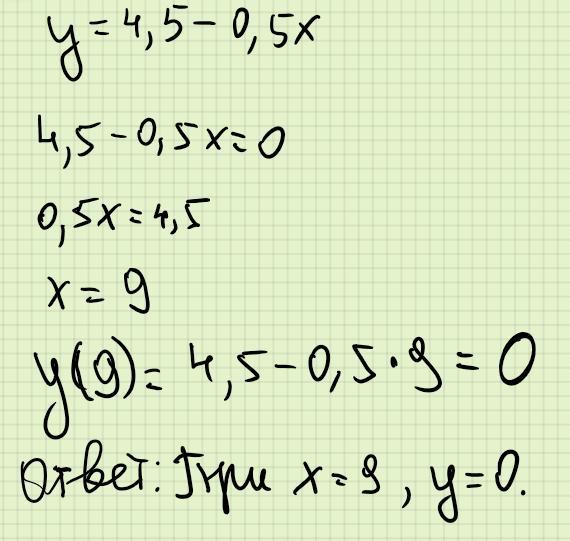 y = 4,5 - 0,5x
4,5 - 0,5x = 0
0,5x = 4,5
x = 9
y(9) = 4,5 - 0,5 · 9 = 0
Ответ: При x = 9, y = 0.